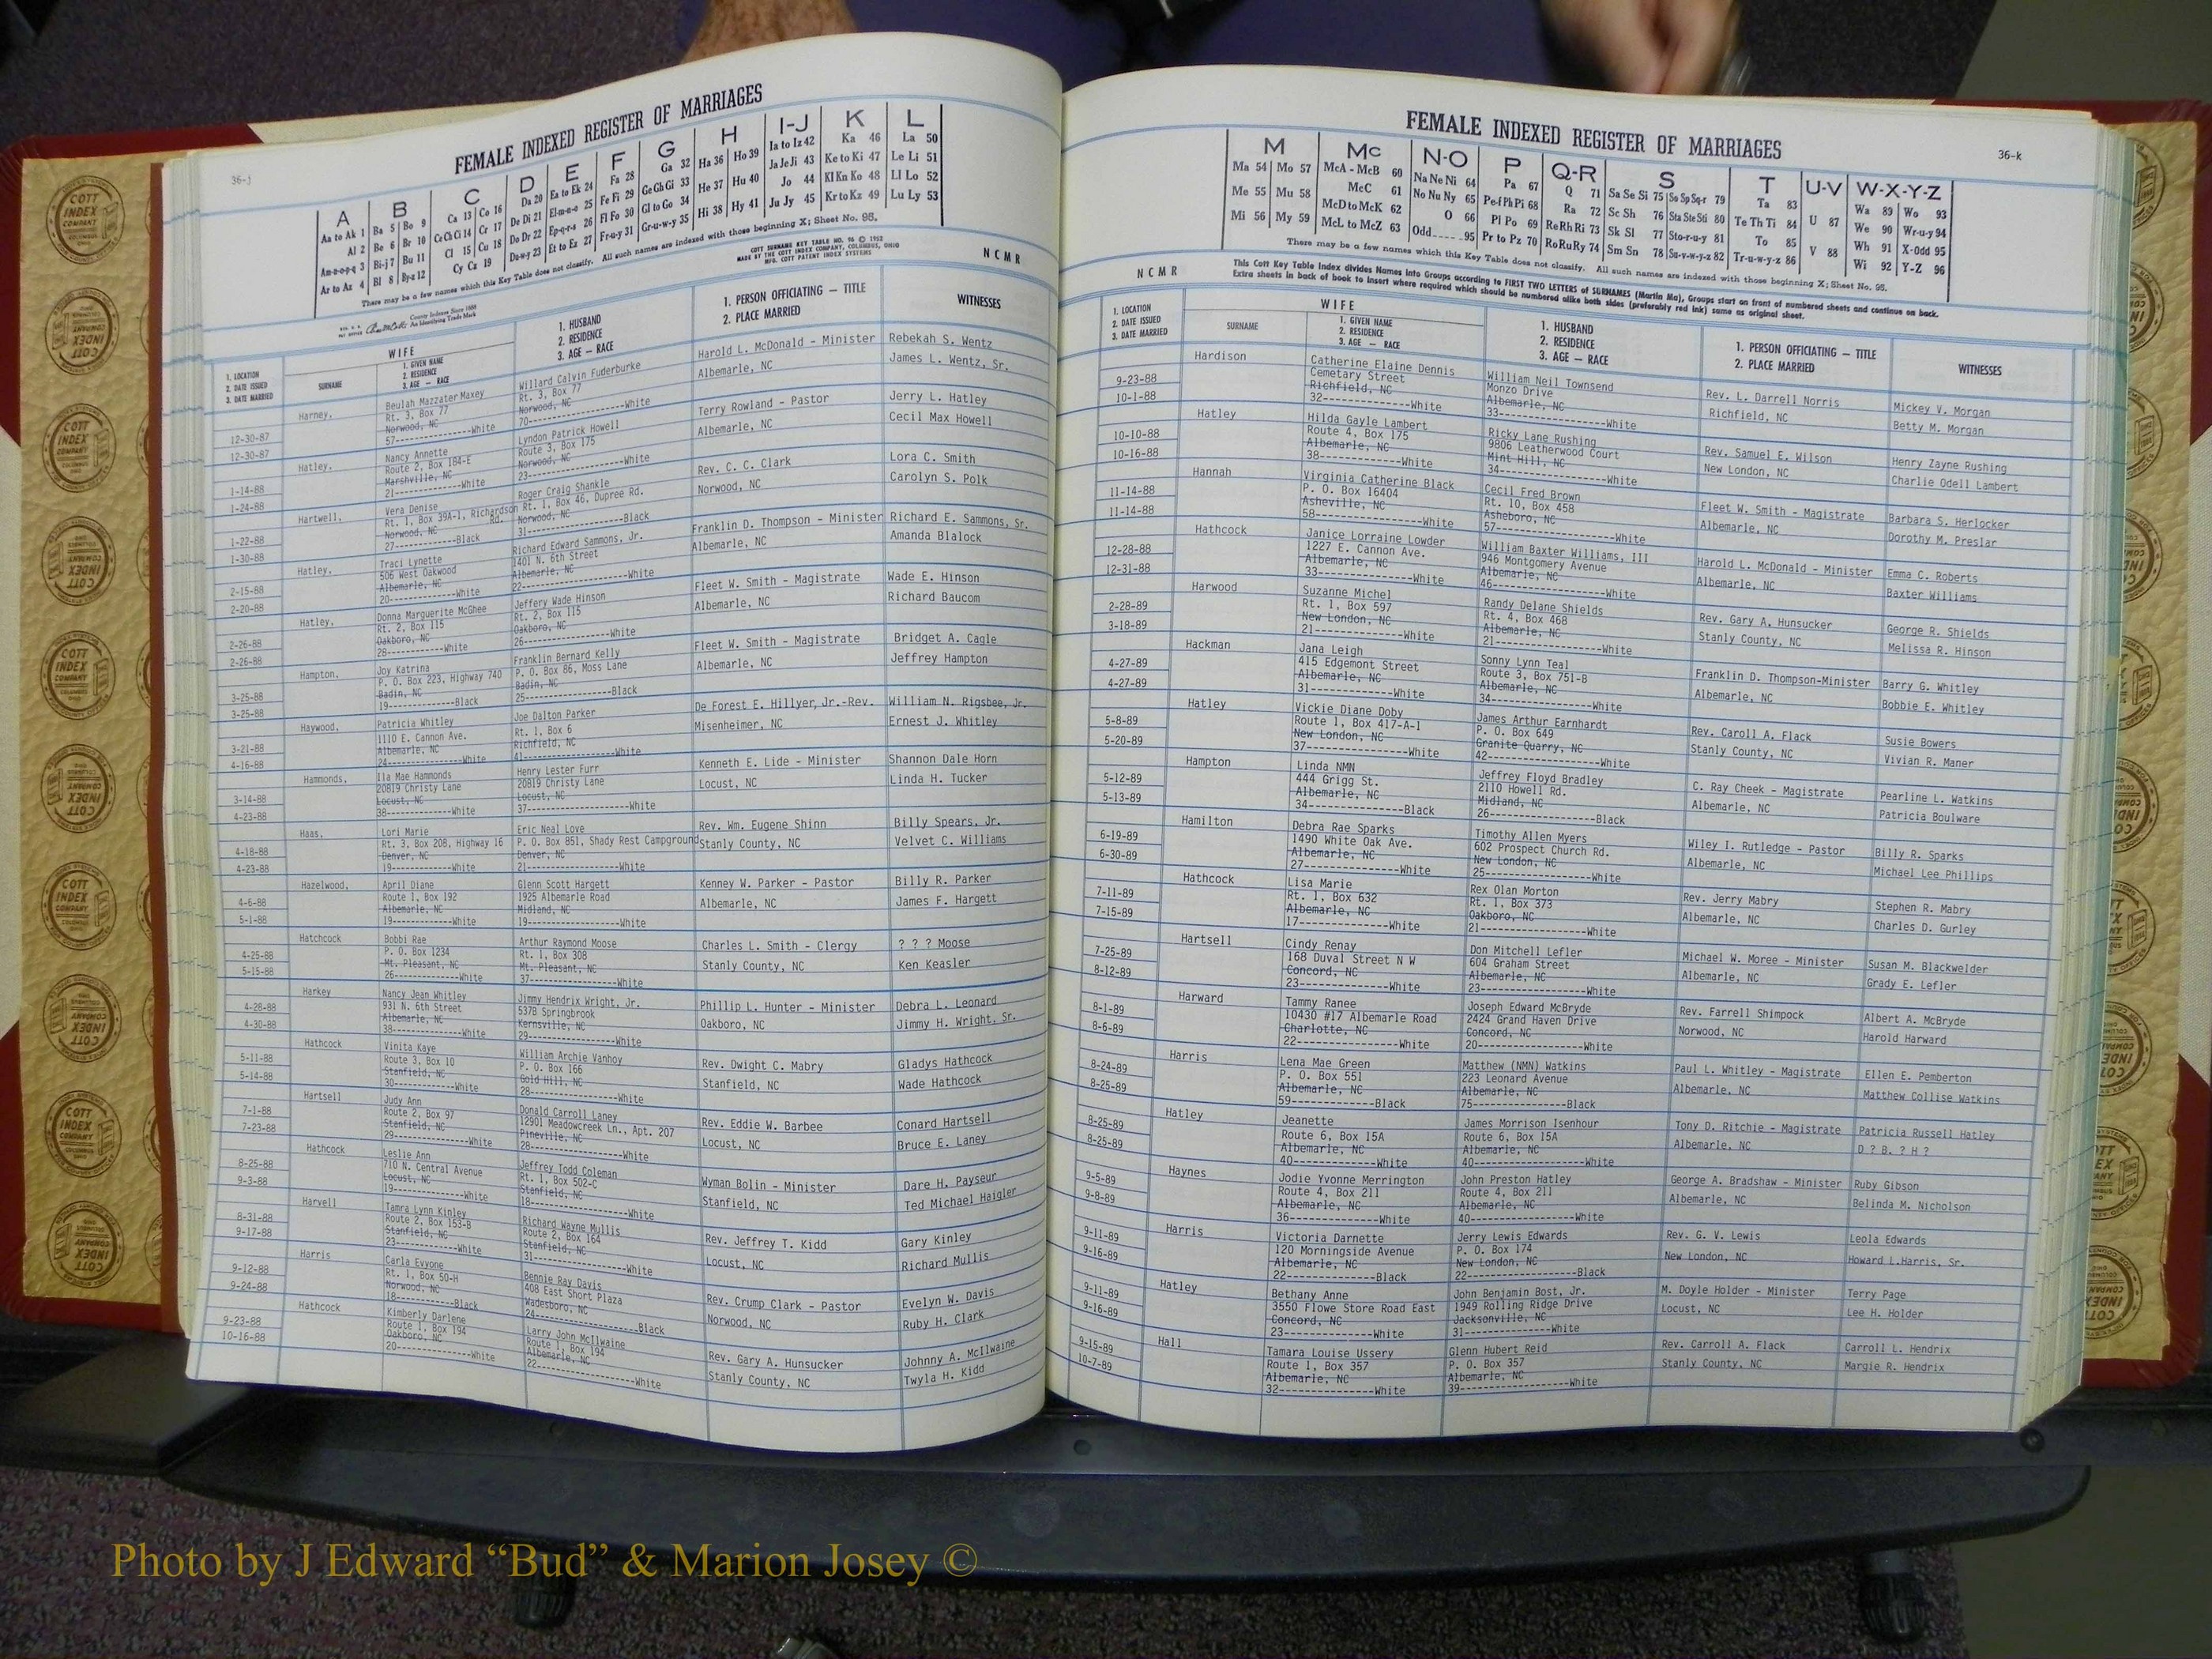 36-j
FEMALE INDEXED REGISTER OF MARRIAGES
A
Aa to Ak 1
Al 2
Am-n-o-p-q 3
Ar to Az 4
B
Ba 5 Bo 9
Be 6 Br 10
Bi-j 7 Bu 11
Bl 8 By-z 12
C
Ca 13 Co 16
Ce Ch Ci 14 Cr 17
Cl 15 Cu 18
Cy Cz 19
D
Da 20
De Di 21
Do Dr 22
Du-w-y 23
E
Ea to Ek 24
El-m-n-o 25
Ep-q-r-s 26
Et to Ez 27
F
Fa 28
Fe Fi 29
Fl Fo 30
Fr-u-y 31
G
Ga 32
Ge Gh Gi 33
Gl to Go 34
Gr-u-w-y 35
H
Ha 36 Ho 39
He 37 Hu 40
Hi 38 Hy 41
I-J
Ia to Iz 42
Ja Je Ji 43
Jo 44
Ju Jy 45
K
Ka 46
Ke to Ki 47
Kl Kn Ko 48
Kr to Kz 49
L
La 50
Le Li 51
Ll Lo 52
Lu Ly 53
There may be a few names which this Key Table does not classify. All such names are indexed with those beginning X; Sheet No. 95.
COTT SURNAME KEY TABLE NO. 96 © 1952
MADE BY THE COTT INDEX COMPANY, COLUMBUS, OHIO
MFG. COTT PATENT INDEX SYSTEMS
County Indexes Since 1888
An Identifying Trade Mark
NCMR
1. LOCATION
2. DATE ISSUED
3. DATE MARRIED
WIFE
SURNAME
1. GIVEN NAME
2. RESIDENCE
3. AGE — RACE
1. HUSBAND
2. RESIDENCE
3. AGE — RACE
1. PERSON OFFICIATING — TITLE
2. PLACE MARRIED
WITNESSES
12-30-87
12-30-87
Harney,
Beulah Mazzater Maxey
Rt. 3, Box 77
Norwood, NC
57------------White
Willard Calvin Fuderburke
Rt. 3, Box 77
Norwood, NC
70------------White
Harold L. McDonald - Minister
Albemarle, NC
Rebekah S. Wentz
James L. Wentz, Sr.
1-14-88
1-24-88
Hatley.
Nancy Annette
Route 2, Box 184-E
Marshville, NC
21------------White
Lyndon Patrick Howell
Route 3, Box 175
Norwood, NC
23------------White
Terry Rowland - Pastor
Albemarle, NC
Jerry L. Hatley
Cecil Max Howell
1-22-88
1-30-88
Hartwell,
Vera Denise
Rt. 1, Box 39A-1, Richardson Rd.
Norwood, NC
27------------Black
Roger Craig Shankle
Rt. 1, Box 46, Dupree Rd.
Norwood, NC
31------------Black
Rev. C. C. Clark
Norwood, NC
Lora C. Smith
Carolyn S. Polk
2-15-88
2-20-88
Hatley,
Traci Lynette
506 West Oakwood
Albemarle, NC
20------------White
Richard Edward Sammons, Jr.
1401 N. 6th Street
Albemarle, NC
22------------White
Franklin D. Thompson - Minister
Albemarle, NC
Richard E. Sammons, Sr.
Amanda Blalock
2-26-88
2-26-88
Hatley,
Donna Marguerite McGhee
Rt. 2, Box 115
Oakboro, NC
28------------White
Jeffery Wade Hinson
Rt. 2, Box 115
Oakboro, NC
26------------White
Fleet W. Smith - Magistrate
Albemarle, NC
Wade E. Hinson
Richard Baucom
3-25-88
3-25-88
Hampton,
Joy Katrina
P. O. Box 223, Highway 740
Badin, NC
19------------Black
Franklin Bernard Kelly
P. O. Box 86, Moss Lane
Badin, NC
25------------Black
Fleet W. Smith - Magistrate
Albemarle, NC
Bridget A. Cagle
Jeffrey Hampton
3-21-88
4-16-88
Haywood,
Patricia Whitley
1110 E. Cannon Ave.
Albemarle, NC
24------------White
Joe Dalton Parker
Rt. 1, Box 6
Richfield, NC
41------------White
De Forest E. Hillyer, Jr.-Rev.
Misenheimer, NC
William N. Rigsbee, Jr.
Ernest J. Whitley
3-14-88
4-23-88
Hammonds,
Ila Mae Hammonds
20819 Christy Lane
Locust, NC
38------------White
Henry Lester Furr
20819 Christy Lane
Locust, NC
37------------White
Kenneth E. Lide - Minister
Locust, NC
Shannon Dale Horn
Linda H. Tucker
4-18-88
4-23-88
Haas,
Lori Marie
Rt. 3, Box 208, Highway 16
Denver, NC
19------------White
Eric Neal Love
P. O. Box 851, Shady Rest Campground
Denver, NC
21------------White
Rev. Wm. Eugene Shinn
Stanly County, NC
Billy Spears, Jr.
Velvet C. Williams
4-6-88
5-1-88
Hazelwood,
April Diane
Route 1, Box 192
Albemarle, NC
19------------White
Glenn Scott Hargett
1925 Albemarle Road
Midland, NC
19------------White
Kenney W. Parker - Pastor
Albemarle, NC
Billy R. Parker
James F. Hargett
4-25-88
5-15-88
Hatchcock
Bobbi Rae
P. O. Box 1234
Mt. Pleasant, NC
26------------White
Arthur Raymond Moose
Rt. 1, Box 308
Mt. Pleasant, NC
37------------White
Charles L. Smith - Clergy
Stanly County, NC
? ? ? Moose
Ken Keasler
4-28-88
4-30-88
Harkey
Nancy Jean Whitley
931 N. 6th Street
Albemarle, NC
38------------White
Jimmy Hendrix Wright, Jr.
5378 Springbrook
Kernsville, NC
29------------White
Phillip L. Hunter - Minister
Oakboro, NC
Debra L. Leonard
Jimmy H. Wright, Sr.
5-11-88
5-14-88
Hathcock
Vinita Kaye
Route 3, Box 10
Stanfield, NC
30------------White
William Archie Vanhoy
P. O. Box 166
Gold Hill, NC
28------------White
Rev. Dwight C. Mabry
Stanfield, NC
Gladys Hathcock
Wade Hathcock
7-1-88
7-23-88
Hartsell
Judy Ann
Route 2, Box 97
Stanfield, NC
29------------White
Donald Carroll Laney
12901 Meadowcreek Ln., Apt. 207
Pineville, NC
28------------White
Rev. Eddie W. Barbee
Locust, NC
Conard Hartsell
Bruce E. Laney
8-25-88
9-3-88
Hathcock
Leslie Ann
710 N. Central Avenue
Locust, NC
19------------White
Jeffrey Todd Coleman
Rt. 1, Box 502-C
Stanfield, NC
18------------White
Wyman Bolin - Minister
Stanfield, NC
Dare H. Payseur
Ted Michael Haigler
8-31-88
9-17-88
Harvell
Tamra Lynn Kinley
Route 2, Box 153-B
Stanfield, NC
23------------White
Richard Wayne Mullis
Route 2, Box 164
Stanfield, NC
31------------White
Rev. Jeffrey T. Kidd
Locust, NC
Gary Kinley
Richard Mullis
9-12-88
9-24-88
Harris
Carla Evyone
Rt. 1, Box 50-H
Norwood, NC
18------------Black
Bennie Ray Davis
408 East Short Plaza
Wadesboro, NC
24------------Black
Rev. Crump Clark - Pastor
Norwood, NC
Evelyn W. Davis
Ruby H. Clark
9-23-88
10-16-88
Hathcock
Kimberly Darlene
Route 1, Box 194
Oakboro, NC
20------------White
Larry John McIlwaine
Route 1, Box 194
Albemarle, NC
22------------White
Rev. Gary A. Hunsucker
Stanly County, NC
Johnny A. McIlwaine
Twyla H. Kidd
36-k
FEMALE INDEXED REGISTER OF MARRIAGES
M
Ma 54 Mo 57
Me 55 Mu 58
Mi 56 My 59
Mc
McA - McB 60
McC 61
McD to McK 62
McL to McZ 63
N-O
Na Ne Ni 64
No Nu Ny 65
O 66
Odd 95
P
Pa 67
Pe-f Ph Pi 68
Pl Po 69
Pr to Pz 70
Q-R
Q 71
Ra 72
Re Rh Ri 73
Ro Ru Ry 74
S
Sa Se Si 75 So Sp Sq-r 79
Sc Sh 76 Sta Ste Sti 80
Sk Sl 77 Sto-r-u-y 81
Sm Sn 78 Su-v-w-y-z 82
T
Ta 83
Te Th Ti 84
To 85
Tr-u-w-y-z 86
U-V
U 87
V 88
W-X-Y-Z
Wa 89 Wo 93
We 90 Wr-u-y 94
Wh 91 X-Odd 95
Wi 92 Y-Z 96
There may be a few names which this Key Table does not classify. All such names are indexed with those beginning X; Sheet No. 95.
This Cott Key Table Index divides Names into Groups according to FIRST TWO LETTERS of SURNAMES (Martin Ma), Groups start on front of numbered sheets and continue on back.
Extra sheets in back of book to insert where required which should be numbered alike both sides (preferably red ink) same as original sheet.
NCMR
1. LOCATION
2. DATE ISSUED
3. DATE MARRIED
WIFE
SURNAME
1. GIVEN NAME
2. RESIDENCE
3. AGE — RACE
1. HUSBAND
2. RESIDENCE
3. AGE — RACE
1. PERSON OFFICIATING — TITLE
2. PLACE MARRIED
WITNESSES
9-23-88
10-1-88
Hardison
Catherine Elaine Dennis
Cemetary Street
Richfield, NC
32------------White
William Neil Townsend
Monzo Drive
Albemarle, NC
33------------White
Rev. L. Darrell Norris
Richfield, NC
Mickey V. Morgan
Betty M. Morgan
10-10-88
10-16-88
Hatley
Hilda Gayle Lambert
Route 4, Box 175
Albemarle, NC
38------------White
Ricky Lane Rushing
9806 Leatherwood Court
Mint Hill, NC
34------------White
Rev. Samuel E. Wilson
New London, NC
Henry Zayne Rushing
Charlie Odell Lambert
11-14-88
11-14-88
Hannah
Virginia Catherine Black
P. O. Box 16404
Asheville, NC
58------------White
Cecil Fred Brown
Rt. 10, Box 458
Asheboro, NC
57------------White
Fleet W. Smith - Magistrate
Albemarle, NC
Barbara S. Herlocker
Dorothy M. Preslar
12-28-88
12-31-88
Hathcock
Janice Lorraine Lowder
1227 E. Cannon Ave.
Albemarle, NC
33------------White
William Baxter Williams, III
946 Montgomery Avenue
Albemarle, NC
46------------White
Harold L. McDonald - Minister
Albemarle, NC
Emma C. Roberts
Baxter Williams
2-28-89
3-18-89
Harwood
Suzanne Michel
Rt. 1, Box 597
New London, NC
21------------White
Randy Delane Shields
Rt. 4, Box 468
Albemarle, NC
21------------White
Rev. Gary A. Hunsucker
Stanly County, NC
George R. Shields
Melissa R. Hinson
4-27-89
4-27-89
Hackman
Jana Leigh
415 Edgemont Street
Albemarle, NC
31------------White
Sonny Lynn Teal
Route 3, Box 751-B
Albemarle, NC
34------------White
Franklin D. Thompson-Minister
Albemarle, NC
Barry G. Whitley
Bobbie E. Whitley
5-8-89
5-20-89
Hatley
Vickie Diane Doby
Route 1, Box 417-A-1
New London, NC
37------------White
James Arthur Earnhardt
P. O. Box 649
Granite Quarry, NC
42------------White
Rev. Caroll A. Flack
Stanly County, NC
Susie Bowers
Vivian R. Maner
5-12-89
5-13-89
Hampton
Linda NMN
444 Grigg St.
Albemarle, NC
34------------Black
Jeffrey Floyd Bradley
2110 Howell Rd.
Midland, NC
26------------Black
C. Ray Cheek - Magistrate
Albemarle, NC
Pearline L. Watkins
Patricia Boulware
6-19-89
6-30-89
Hamilton
Debra Rae Sparks
1490 White Oak Ave.
Albemarle, NC
27------------White
Timothy Allen Myers
602 Prospect Church Rd.
New London, NC
25------------White
Wiley I. Rutledge - Pastor
Albemarle, NC
Billy R. Sparks
Michael Lee Phillips
7-11-89
7-15-89
Hathcock
Lisa Marie
Rt. 1, Box 632
Albemarle, NC
17------------White
Rex Olan Morton
Rt. 1, Box 373
Oakboro, NC
21------------White
Rev. Jerry Mabry
Albemarle, NC
Stephen R. Mabry
Charles D. Gurley
7-25-89
8-12-89
Hartsell
Cindy Renay
168 Duval Street N W
Concord, NC
23------------White
Don Mitchell Lefler
604 Graham Street
Albemarle, NC
23------------White
Michael W. Moree - Minister
Albemarle, NC
Susan M. Blackwelder
Grady E. Lefler
8-1-89
8-6-89
Harward
Tammy Ranee
10430 #17 Albemarle Road
Charlotte, NC
22------------White
Joseph Edward McBryde
2424 Grand Haven Drive
Concord, NC
20------------White
Rev. Farrell Shimpock
Norwood, NC
Albert A. McBryde
Harold Harward
8-24-89
8-25-89
Harris
Lena Mae Green
P. O. Box 551
Albemarle, NC
59------------Black
Matthew (NMN) Watkins
223 Leonard Avenue
Albemarle, NC
75------------Black
Paul L. Whitley - Magistrate
Albemarle, NC
Ellen E. Pemberton
Matthew Collise Watkins
8-25-89
8-25-89
Hatley
Jeanette
Route 6, Box 15A
Albemarle, NC
40------------White
James Morrison Isenhour
Route 6, Box 15A
Albemarle, NC
40------------White
Tony D. Ritchie - Magistrate
Albemarle, NC
Patricia Russell Hatley
D ? B. ? H ?
9-5-89
9-8-89
Haynes
Jodie Yvonne Merrington
Route 4, Box 211
Albemarle, NC
36------------White
John Preston Hatley
Route 4, Box 211
Albemarle, NC
40------------White
George A. Bradshaw - Minister
Albemarle, NC
Ruby Gibson
Belinda M. Nicholson
9-11-89
9-16-89
Harris
Victoria Darnette
120 Morningside Avenue
Albemarle, NC
22------------Black
Jerry Lewis Edwards
P. O. Box 174
New London, NC
22------------Black
Rev. G. V. Lewis
New London, NC
Leola Edwards
Howard L.Harris, Sr.
9-11-89
9-16-89
Hatley
Bethany Anne
3550 Flowe Store Road East
Concord, NC
23------------White
John Benjamin Bost, Jr.
1949 Rolling Ridge Drive
Jacksonville, NC
31------------White
M. Doyle Holder - Minister
Locust, NC
Terry Page
Lee H. Holder
9-15-89
10-7-89
Hall
Tamara Louise Ussery
Route 1, Box 357
Albemarle, NC
32------------White
Glenn Hubert Reid
P. O. Box 357
Albemarle, NC
39------------White
Rev. Carroll A. Flack
Stanly County, NC
Carroll L. Hendrix
Margie R. Hendrix
COTT INDEX COMPANY
Photo by J Edward “Bud” & Marion Josey ©